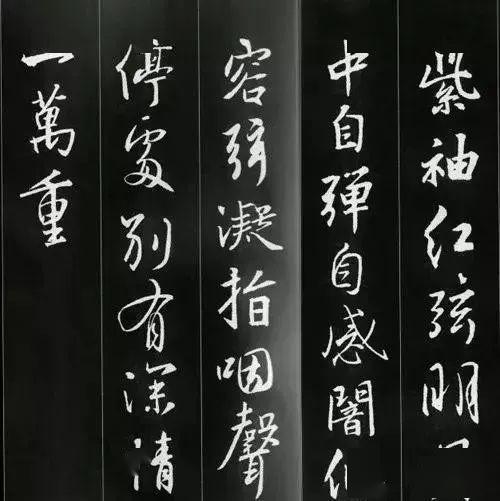 紫袖红弦明
中自弹自感闇
容弦凝指咽聲
停處别有深清
一萬重